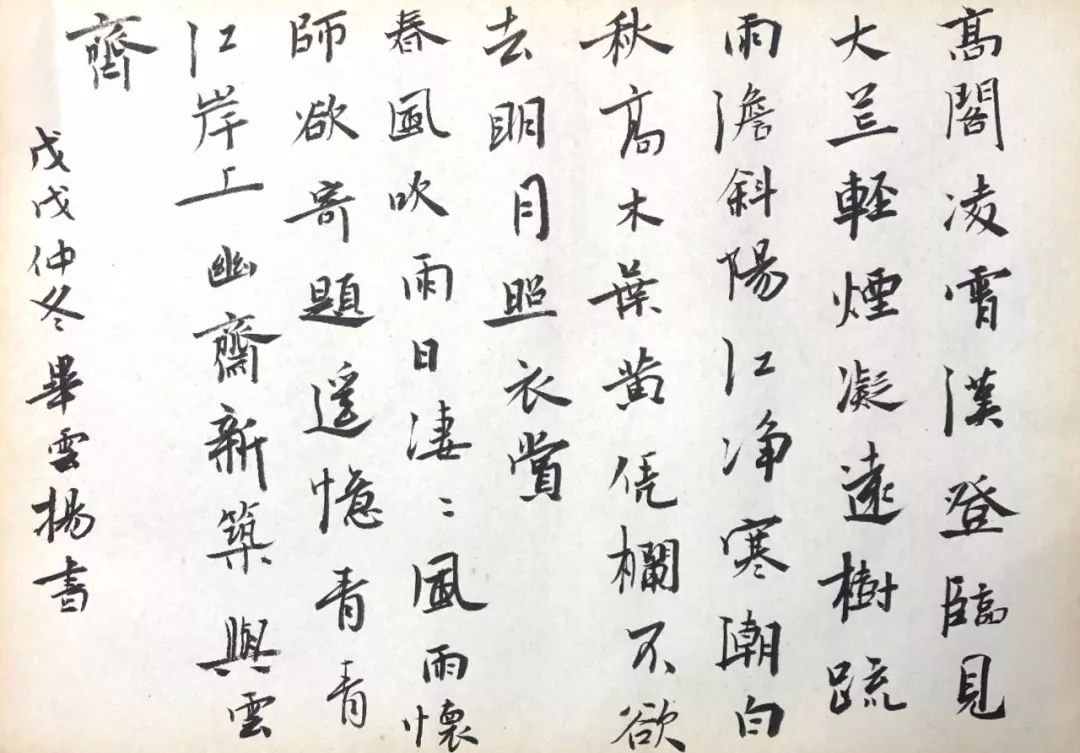 高閣凌霄漢登臨見
大荒輕煙凝遠樹疏
雨澹斜陽江净寒潮白
秋高木葉黄凭欄不欲
去明月照衣裳
春風吹雨日淒〻風雨懷
師欲寄題遥憶青青
江岸上幽齋新築與雲
齊
戊戌仲冬畢雲楊書